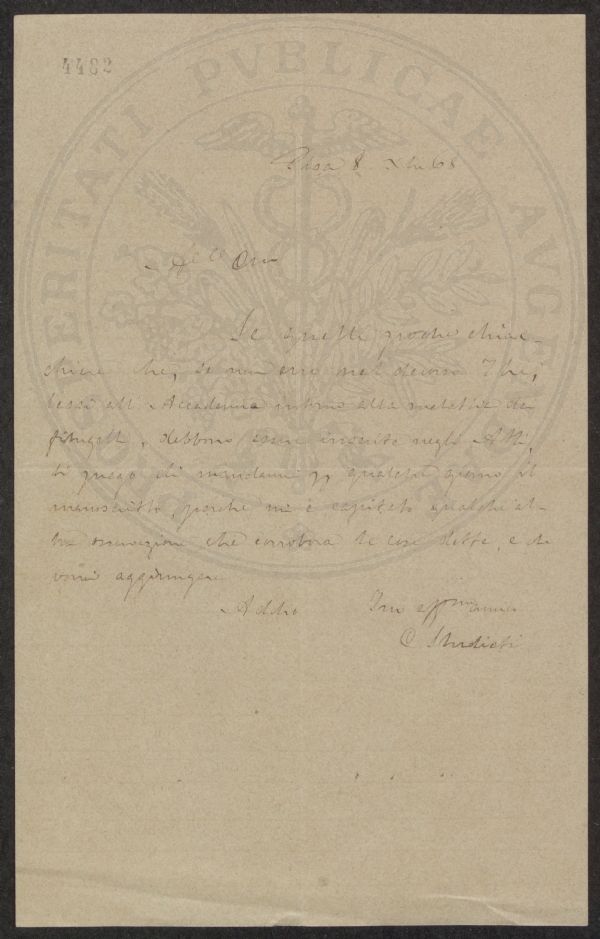 4482
PROSPERITATI PVBLICAE AVGENDAE
Pisa 8 Xbre 68
Amico
Se quelle poche chiac-
chiere che, se non erro nel decorso
lessi all'Accademia intorno alla malattia dei
filugelli, debbono essere inserite negli Atti,
ti prego di mandarmi p. qualche giorno il
manoscritto, perché mi è capitata qualche al-
tra osservazione che corrobora le cose dette, e che
vorrei aggiungere.
Addio
Tuo affmo amico
C Studiati